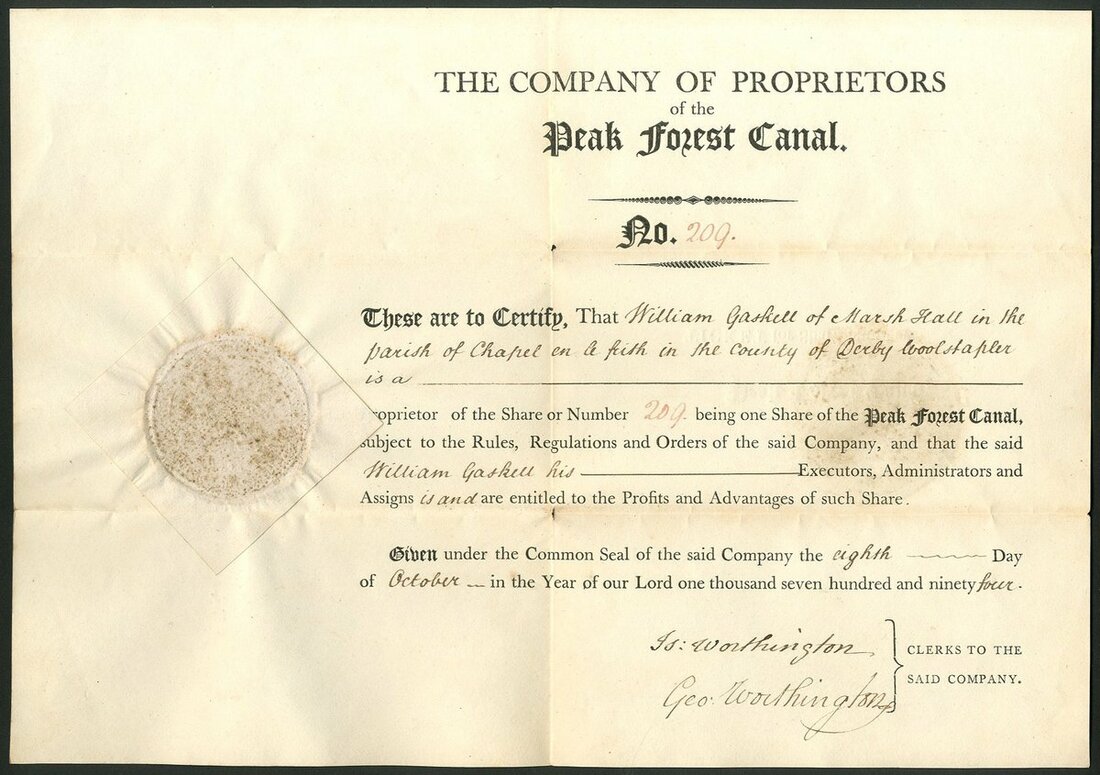 THE COMPANY OF PROPRIETORS
of the
Peak Forest Canal.
No. 209.
These are to Certify, That William Gaskell of Marsh Hall in the
parish of Chapel en le frith in the County of Derby Woolstapler
is a
roprietor of the Share or Number 209. being one Share of the Peak Forest Canal,
subject to the Rules, Regulations and Orders of the said Company, and that the said
William Gaskell his Executors, Administrators and
Assigns is and are entitled to the Profits and Advantages of such Share.
Given under the Common Seal of the said Company the eighth Day
of October in the Year of our Lord one thousand seven hundred and ninety four.
Is: Worthington
Geo. Worthington
CLERKS TO THE
SAID COMPANY.